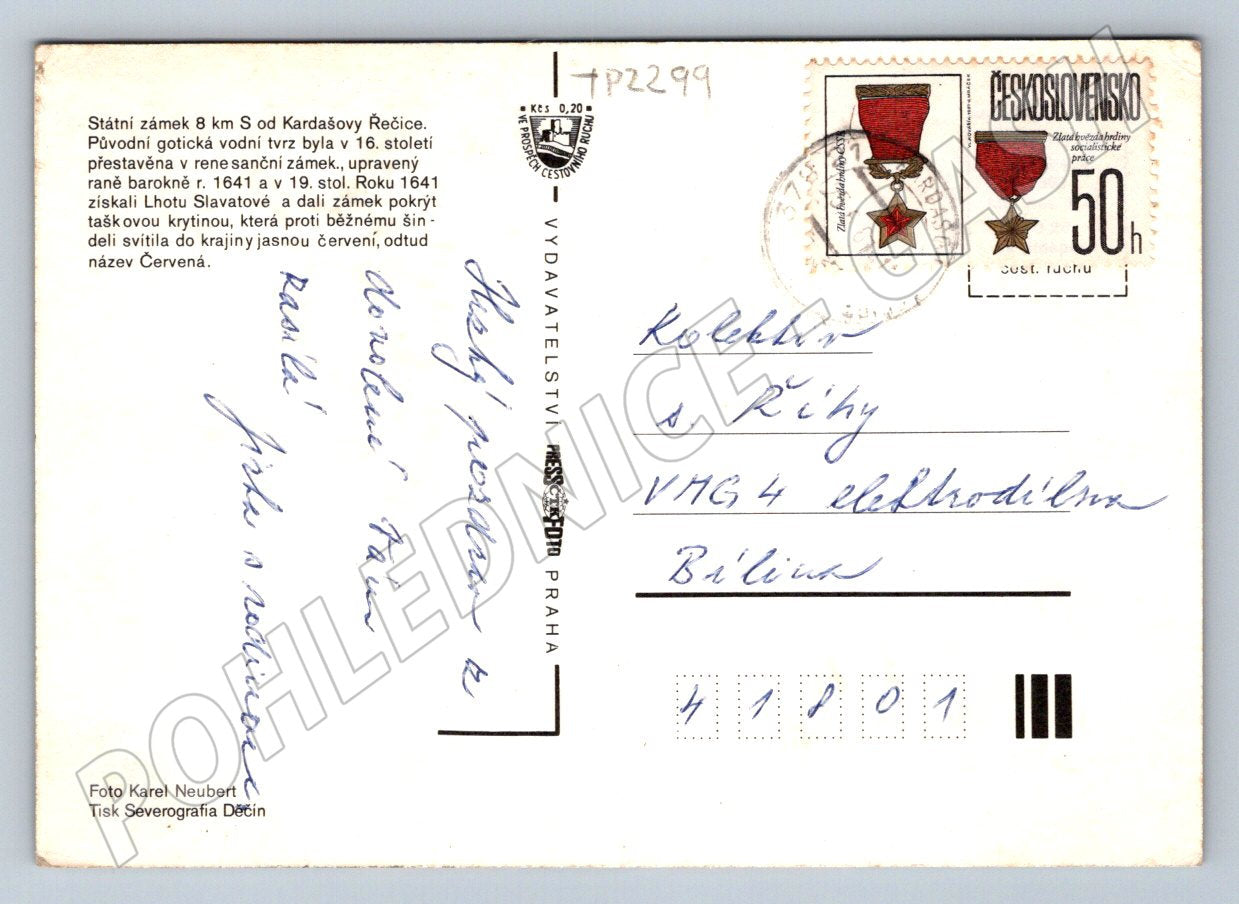 Státní zámek 8 km S od Kardašovy Řečice.
Původní gotická vodní tvrz byla v 16. století
přestavěna v rene sanční zámek., upravený
raně barokně r. 1641 a v 19. stol. Roku 1641
získali Lhotu Slavatové a dali zámek pokrýt
taškovou krytinou, která proti běžnému šin -
deli svítila do krajiny jasnou červení, odtud
název Červená.
Hezký pozdrav z
dovolené Vám
zasílá
Jirka s rodinou
Foto Karel Neubert
Tisk Severografia Děčín
TP2299
Kčs 0,20
VE PROSPĚCH CESTOVNÍHO RUCHU
VYDAVATELSTVÍ PRESSFOTO PRAHA
ČTK
ČESKOSLOVENSKO
Zlatá hvězda hrdiny ČSSR
Zlatá hvězda hrdiny
socialistické
práce
50 h
cest. ruchu
Kolektiv
s. Říhy
VMG 4 elektrodílna
Bílina
41801
POHLEDNICE - CASH